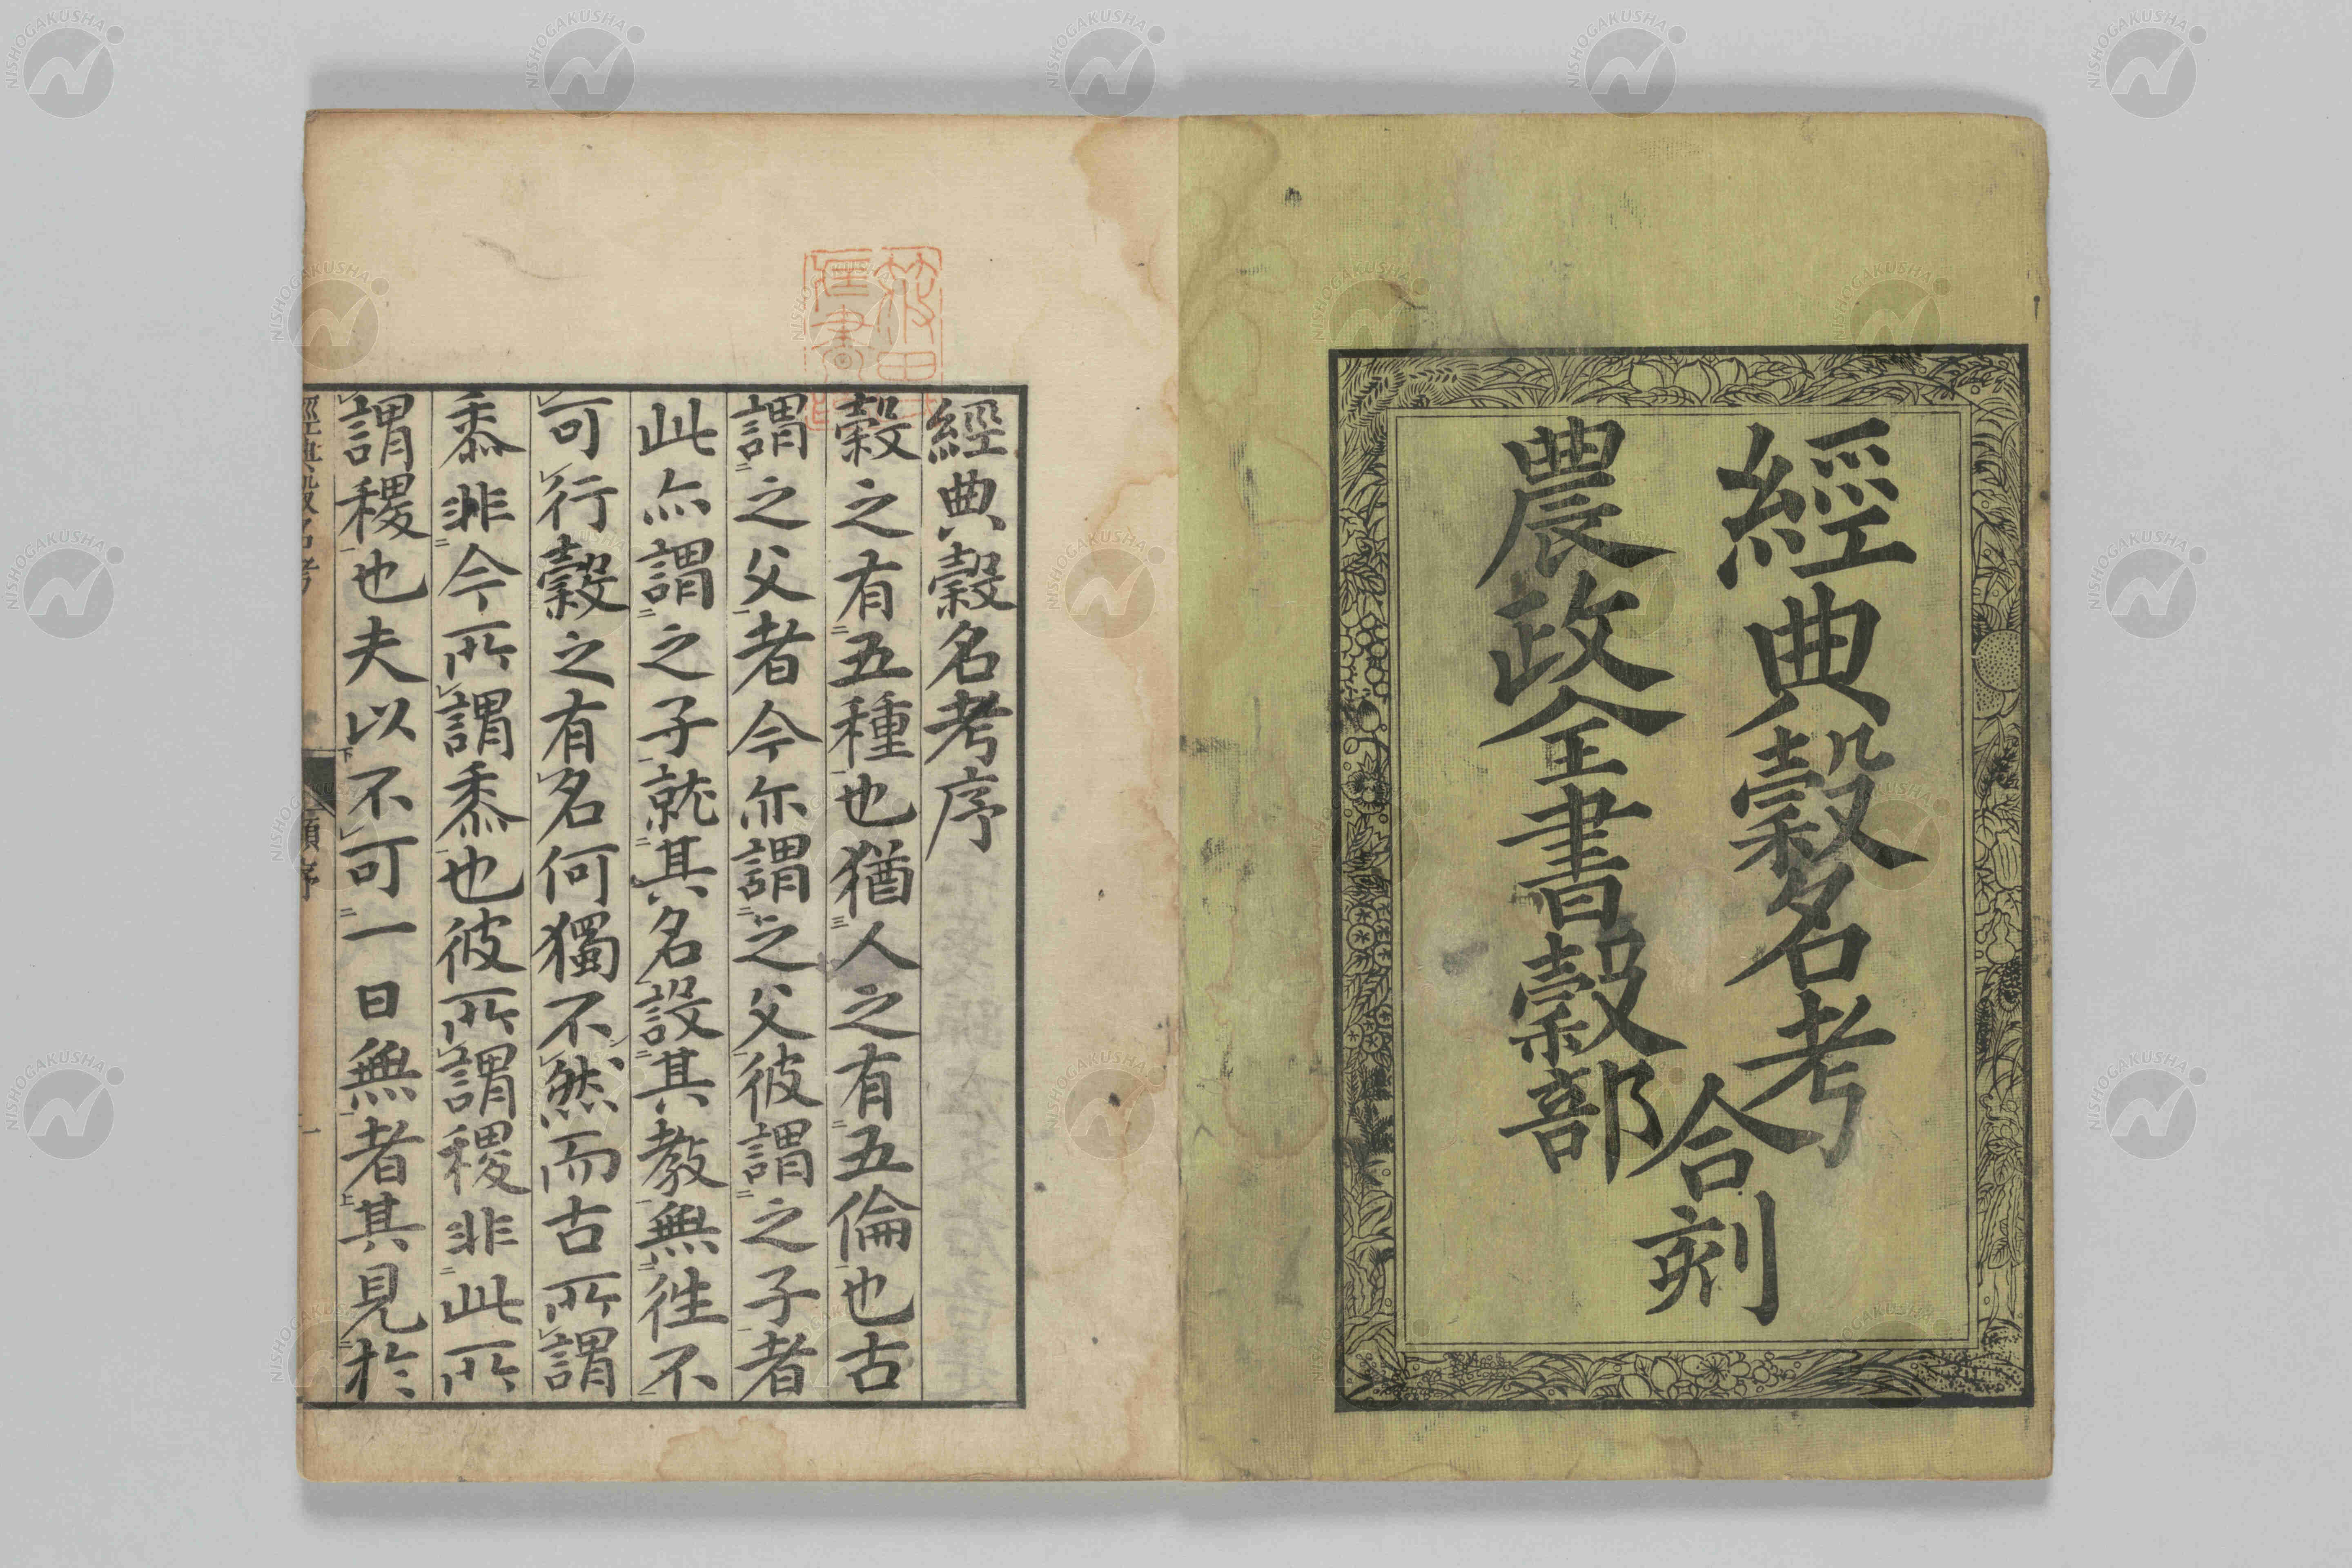 經典穀名考
農政全書穀部
合刻
經典穀名考序
穀之有五種也猶人之有五倫也古
謂之父者今亦謂之父彼謂之子者
此亦謂之子就其名設其教無徃不
可行穀之有名何獨不然而古所謂
黍非今所謂黍也彼所謂稷非此所
謂稷也夫以不可一日無者其見於
經典穀名考
序
一
NISHOGAKUSHA